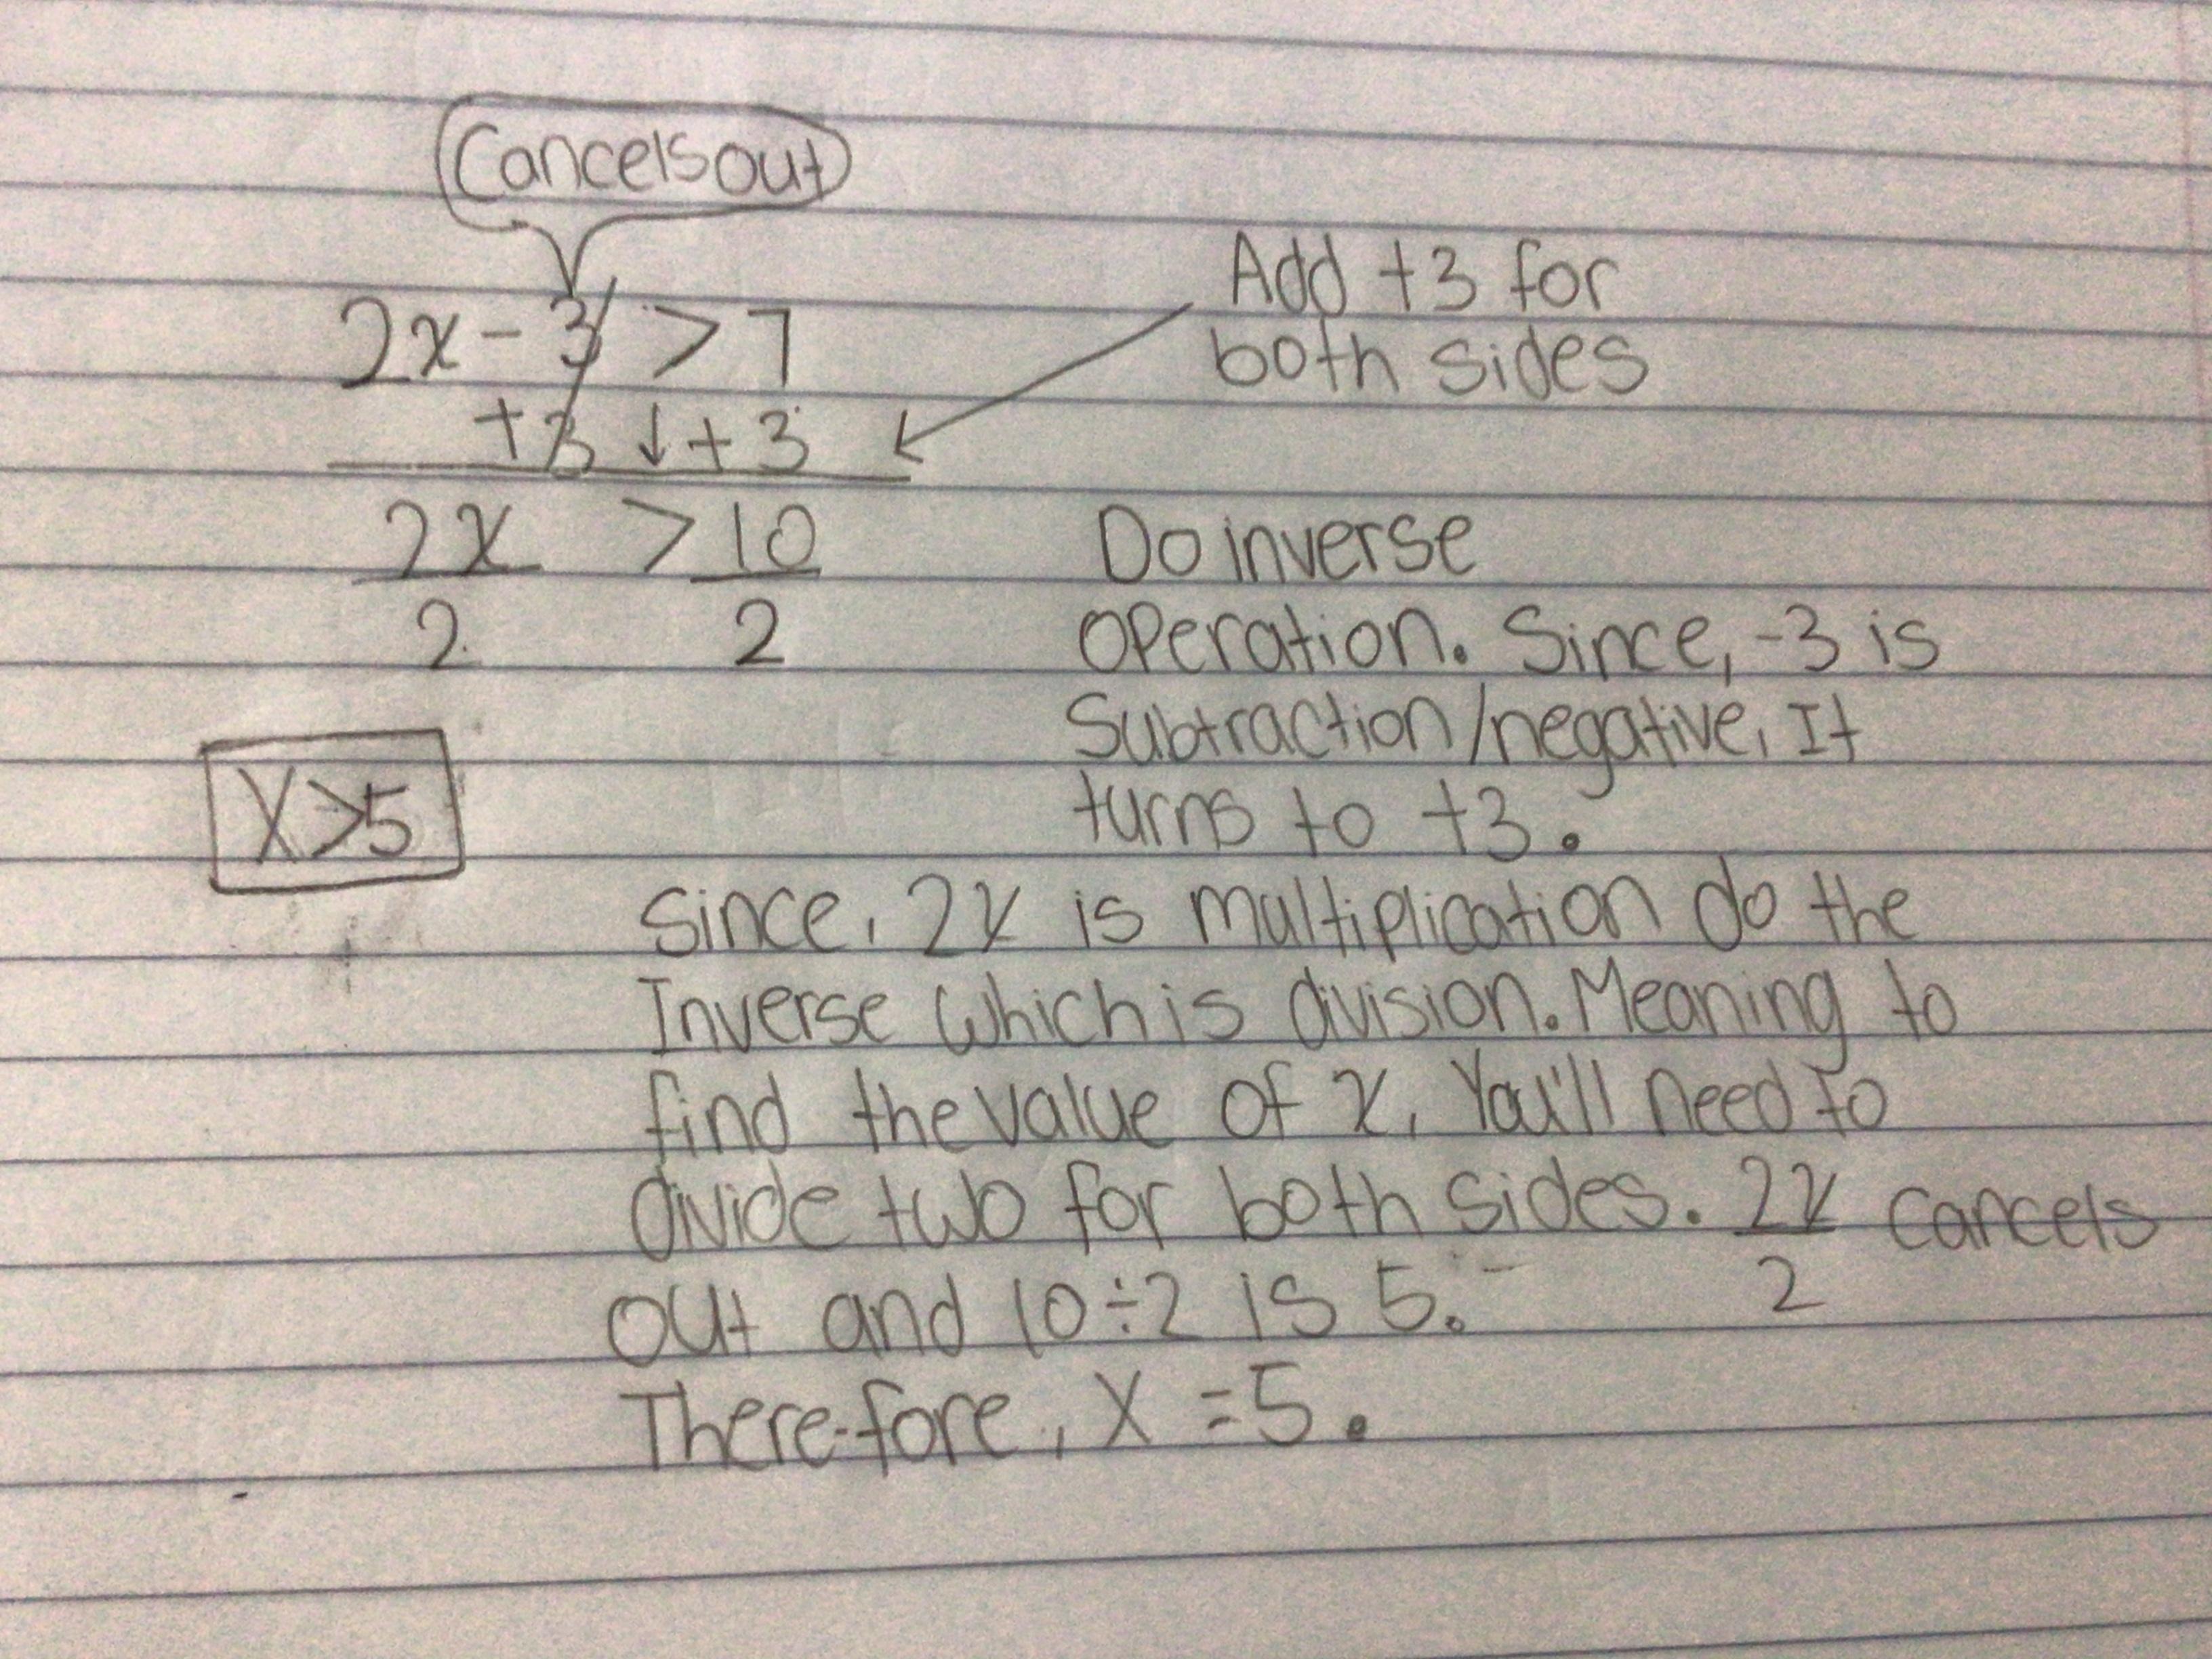 Cancels out
2x - 3 > 7
+3 ↓ +3
Add +3 for
both sides
2x > 10
2 2
Do inverse
operation. Since, -3 is
Subtraction/negative, It
turns to +3.
X>5
Since, 2x is multiplication do the
Inverse which is division. Meaning to
find the value of x, You'll need to
divide two for both sides. 2x cancels
2
out and 10÷2 is 5.
Therefore, X = 5.